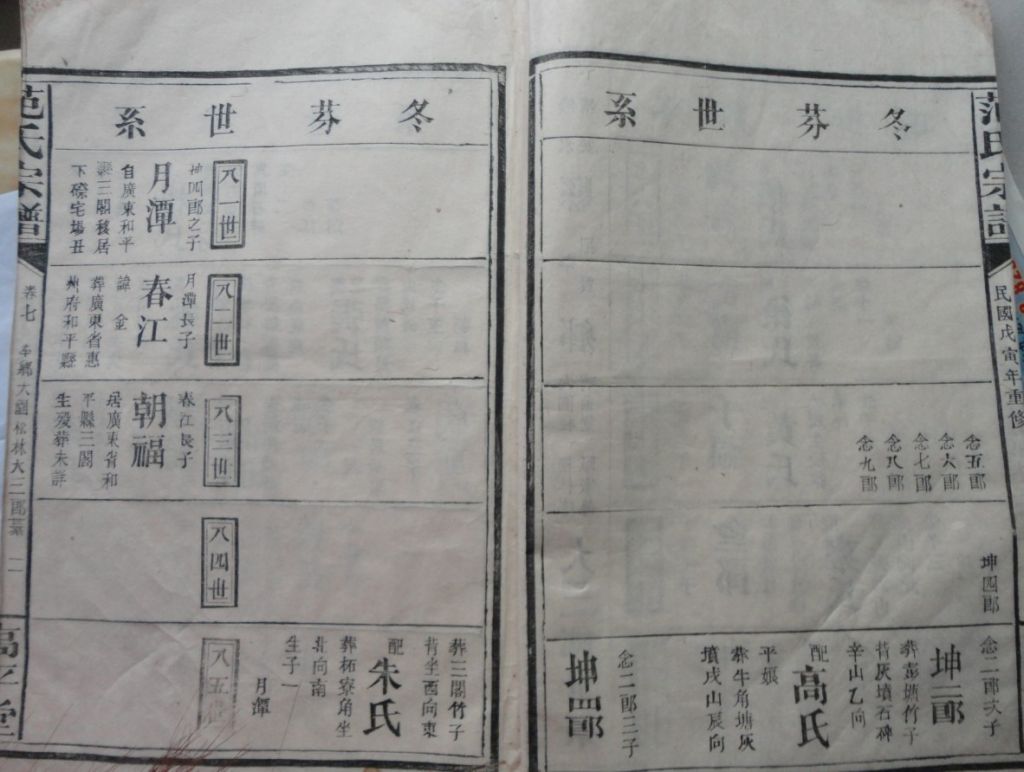 范氏宗譜
民國戊寅年重修
冬芬世系
念五郎
念六郎
念七郎
念八郎
念九郎
坤四郎
念二郎次子
坤三郎
葬彭塘竹子
背灰墳石碑
辛山乙向
配
高氏
平娘
葬牛角塘灰
墳戌山辰向
念二郎三子
坤四郎
冬芬世系
八一世
坤四郎之子
月潭
自廣東和平
縣三閣移居
下磜宅場丑
八二世
月潭長子
春江
諱金
葬廣東省惠
州府和平縣
八三世
春江長子
朝福
居廣東省和
平縣三閣
生殁葬未詳
八四世
葬三閣竹子
背坐酉向東
配
朱氏
葬柘寮角坐
北向南
生子一
月潭
八五世
范氏宗譜
卷七
高平堂